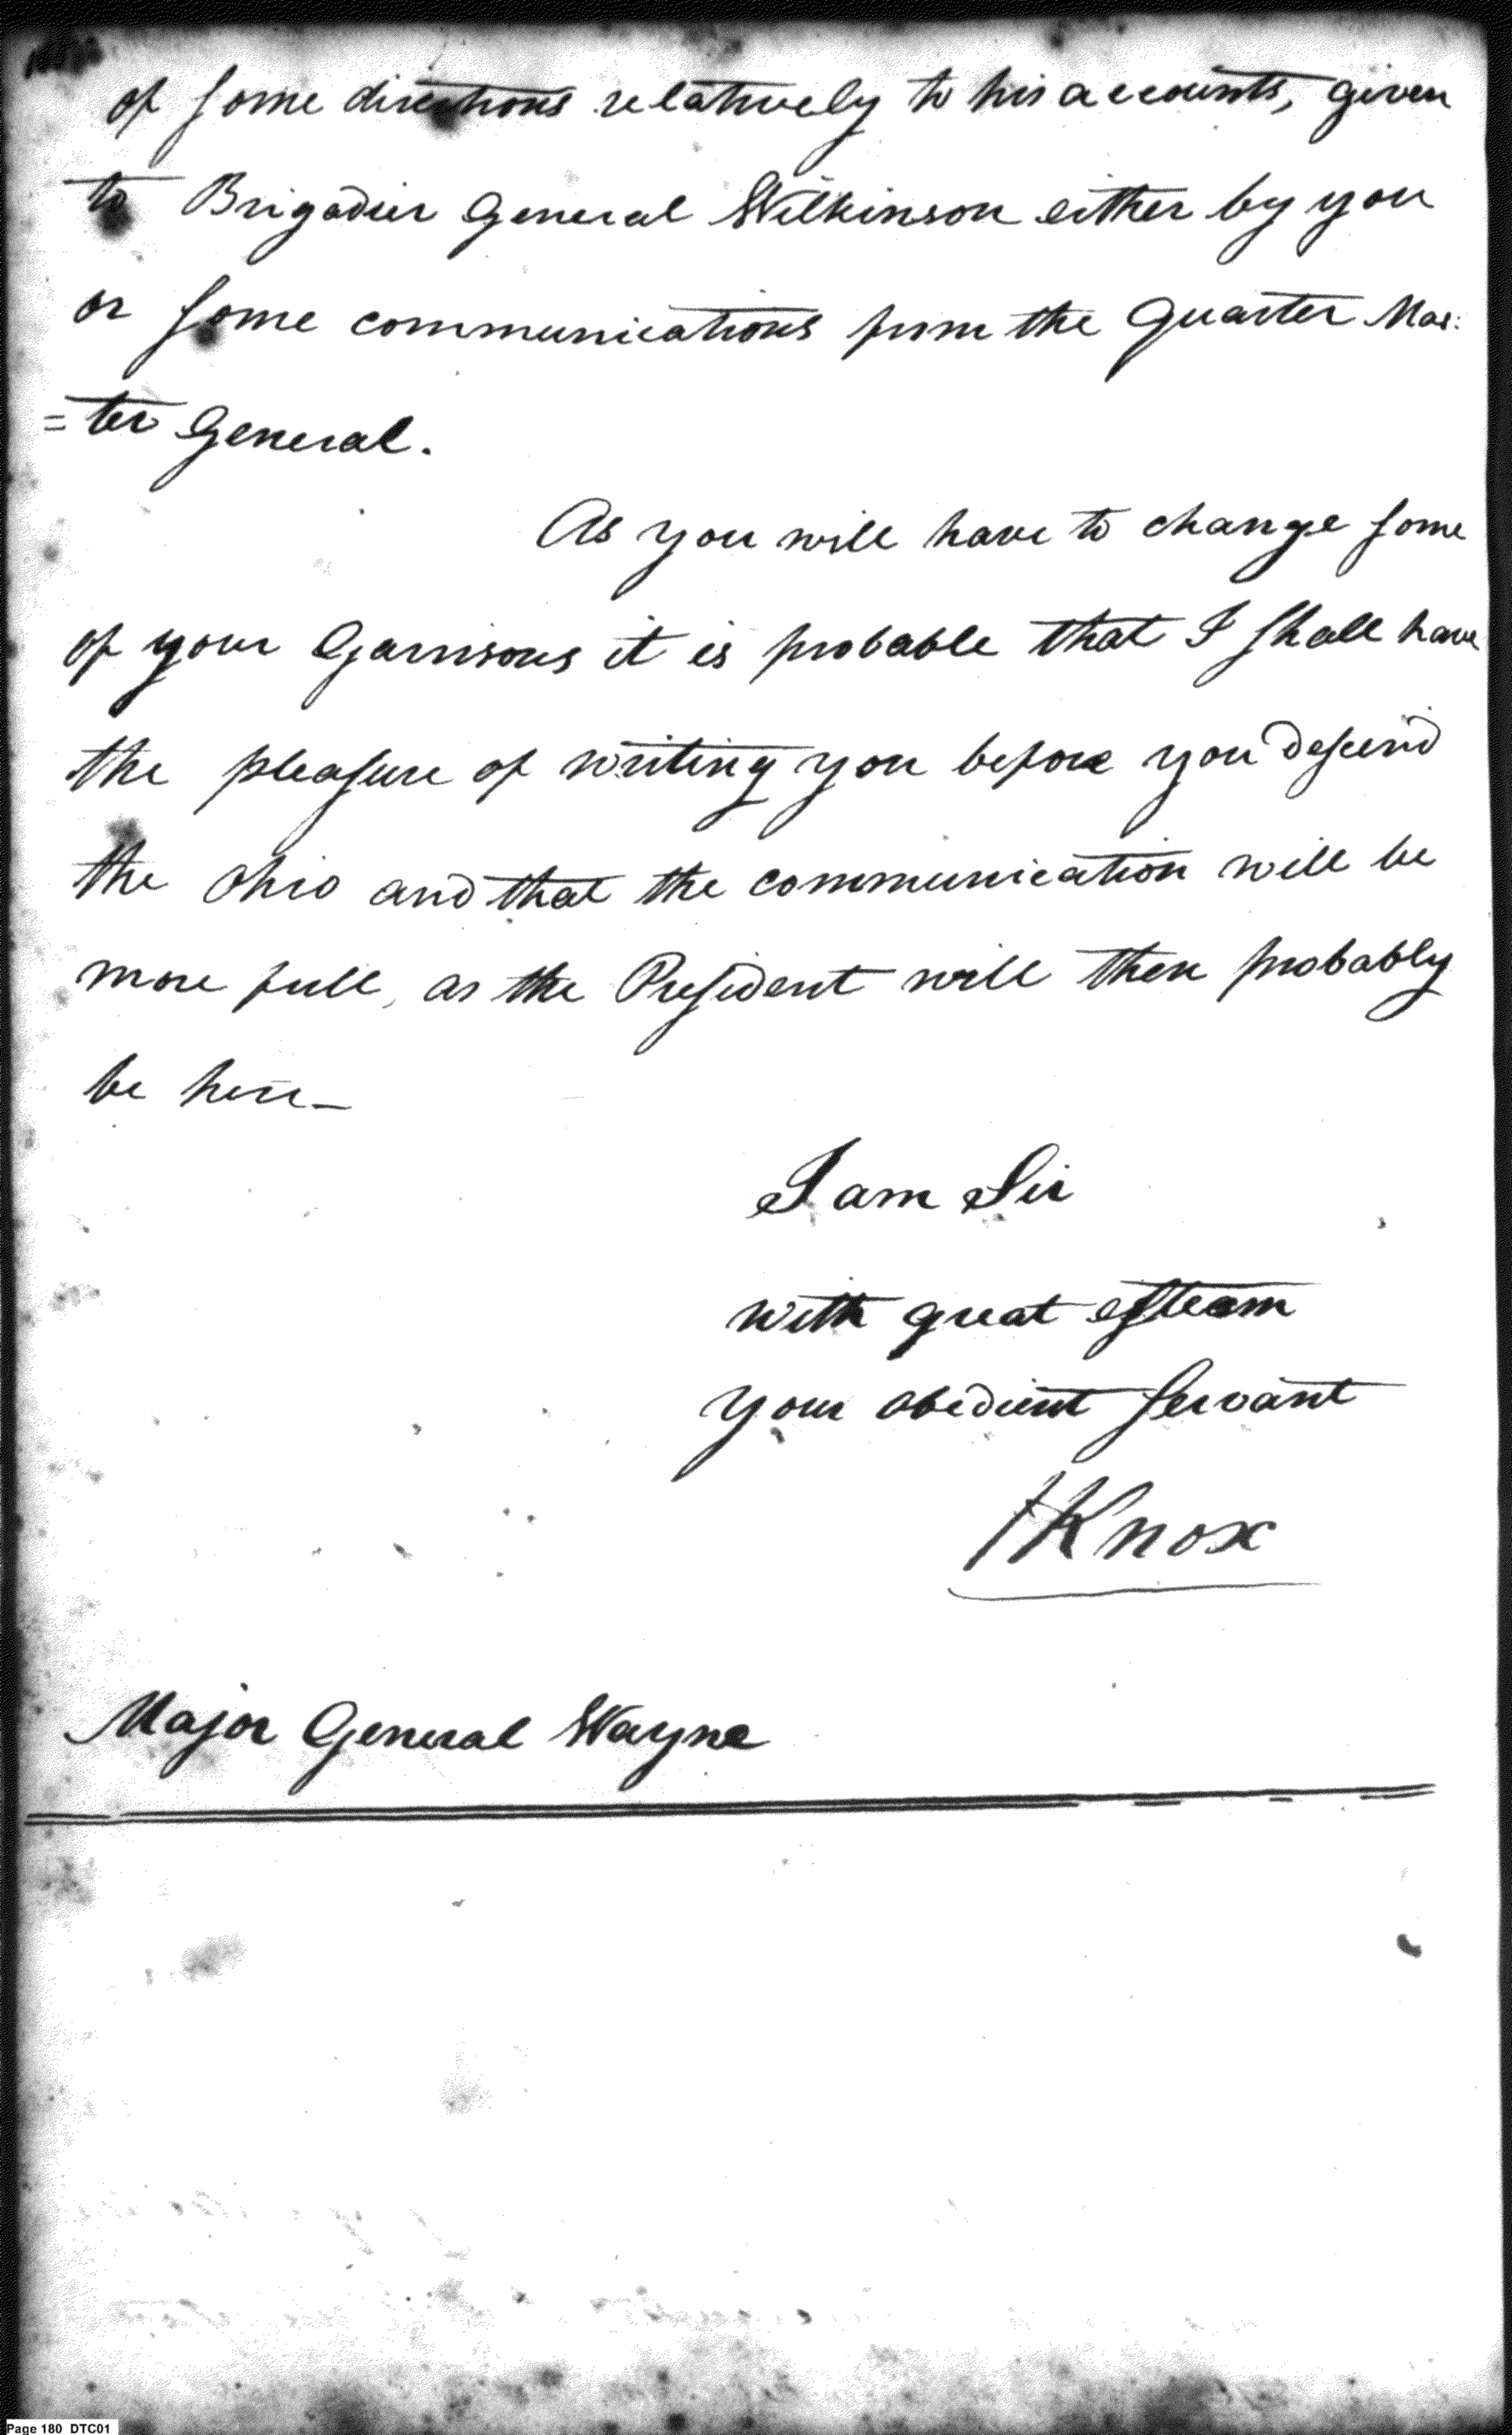 of some directions relatively to his accounts, given
to Brigadier General Wilkinson either by you
or some communications from the Quarter Mas:
=ter General.
As you will have to change some
of your Garrisons it is probable that I shall have
the pleasure of writing you before you descend
the Ohio and that the communication will be
more full, as the President will then probably
be here_
I am Sir
with great esteem
your obedient servant
HKnox
Major General Wayne
Page 180 DTC01